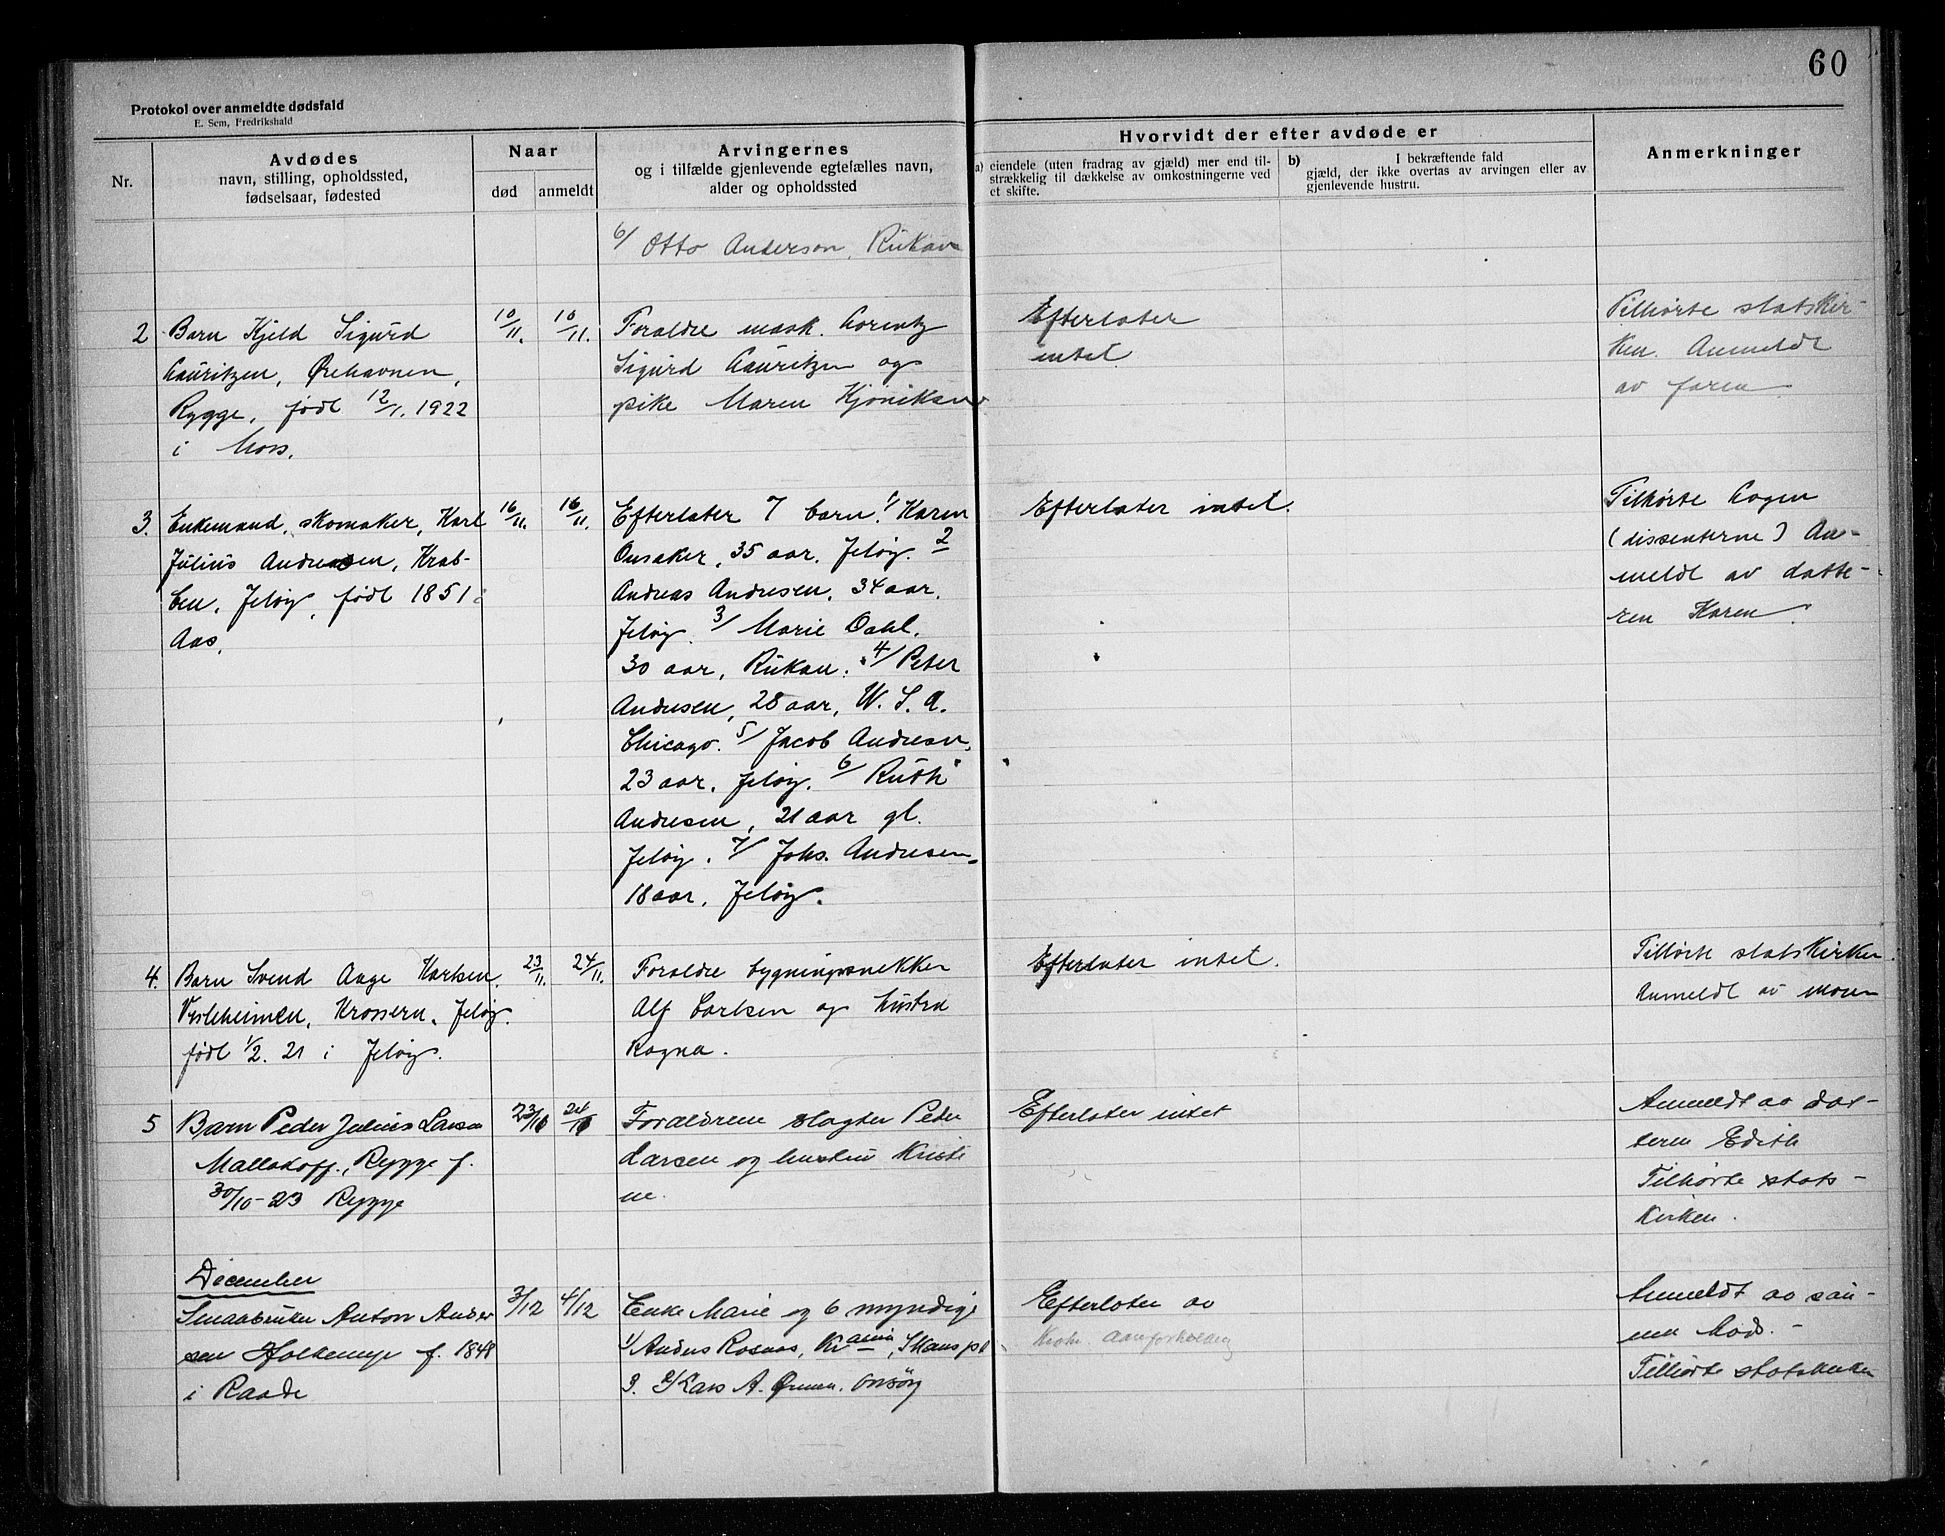 60
Protokol over anmeldte dødsfald
E. Sem, Fredrikshald
Nr.
Avdødes
navn, stilling, opholdssted,
fødselsaar, fødested
Naar
død
anmeldt
Arvingernes
og i tilfælde gjenlevende egtefælles navn,
alder og opholdssted
Hvorvidt der efter avdøde er
a) eiendele (uten fradrag av gjæld) mer end til-
strækkelig til dækkelse av omkostningerne ved
et skifte.
b) I bekræftende fald
gjæld, der ikke overtas av arvingen eller av
gjenlevende hustru.
Anmerkninger
6/ Otto Anderson, Rukan
2
Barn Kjeld Sigurd
Lauritzen, Ørehavnen,
Rygge, født 12/1. 1922
i Moss.
10/11.
10/11.
Foraldre mask. Lorentz
Sigurd Lauritzen og
pike Maren
Efterlater
intet
Tilhørte statskir-
ken. Anmeldt
av faren
3.
Enkemand, skomaker, Karl
Julius Andresen, Krab-
ben, Jeløy, født 1851 i
Aas.
16/11.
16/11.
Efterlater 7 barn. 1/ Karen
Onsaker, 35 aar, Jeløy. 2
Andreas Andresen, 34 aar,
Jeløy. 3/ Marie Dahl,
30 aar, Rukan. 4/ Peter
Andresen, 28 aar, U. S. A.
Chicago. 5/ Jacob Andresen,
23 aar, Jeløy. 6/ Ruth
Andresen, 21 aar gl.
Jeløy. 7/ Johs. Andresen,
18 aar, Jeløy.
Efterlater intet.
Tilhørte Logen
(dissenterne) An-
meldt av datte-
ren Karen.
4.
Barn Svend Aage Karlsen,
Vesleheimen, Krossern, Jeløy.
født 1/2. 21 i Jeløy.
23/11.
24/11.
Foraldre bygningssnekker
Alf Carlsen og hustru
Ragna.
Efterlater intet.
Tilhørte statskirken
Anmeldt av moren
5
Barn Peder Julius Larsen
Mallakoff, Rygge f.
30/10-23 Rygge
23/10
24/10
Foraldrene slagter Peder
Larsen og hustru Kristi
ne.
Efterlater intet
Anmeldt av dat-
teren Edith
Tilhørte stats-
kirken.
December
Smaabruker Anton Ander
sen f. 1848
i Raade
3/12
4/12
Enke Marie og 6 myndige
1/ Anders Rosnes, Kr ania,
3. 2/ Kars A. Onsøy
Efterlater av
Anmeldt av søn-
nen
Tilhørte statskirken